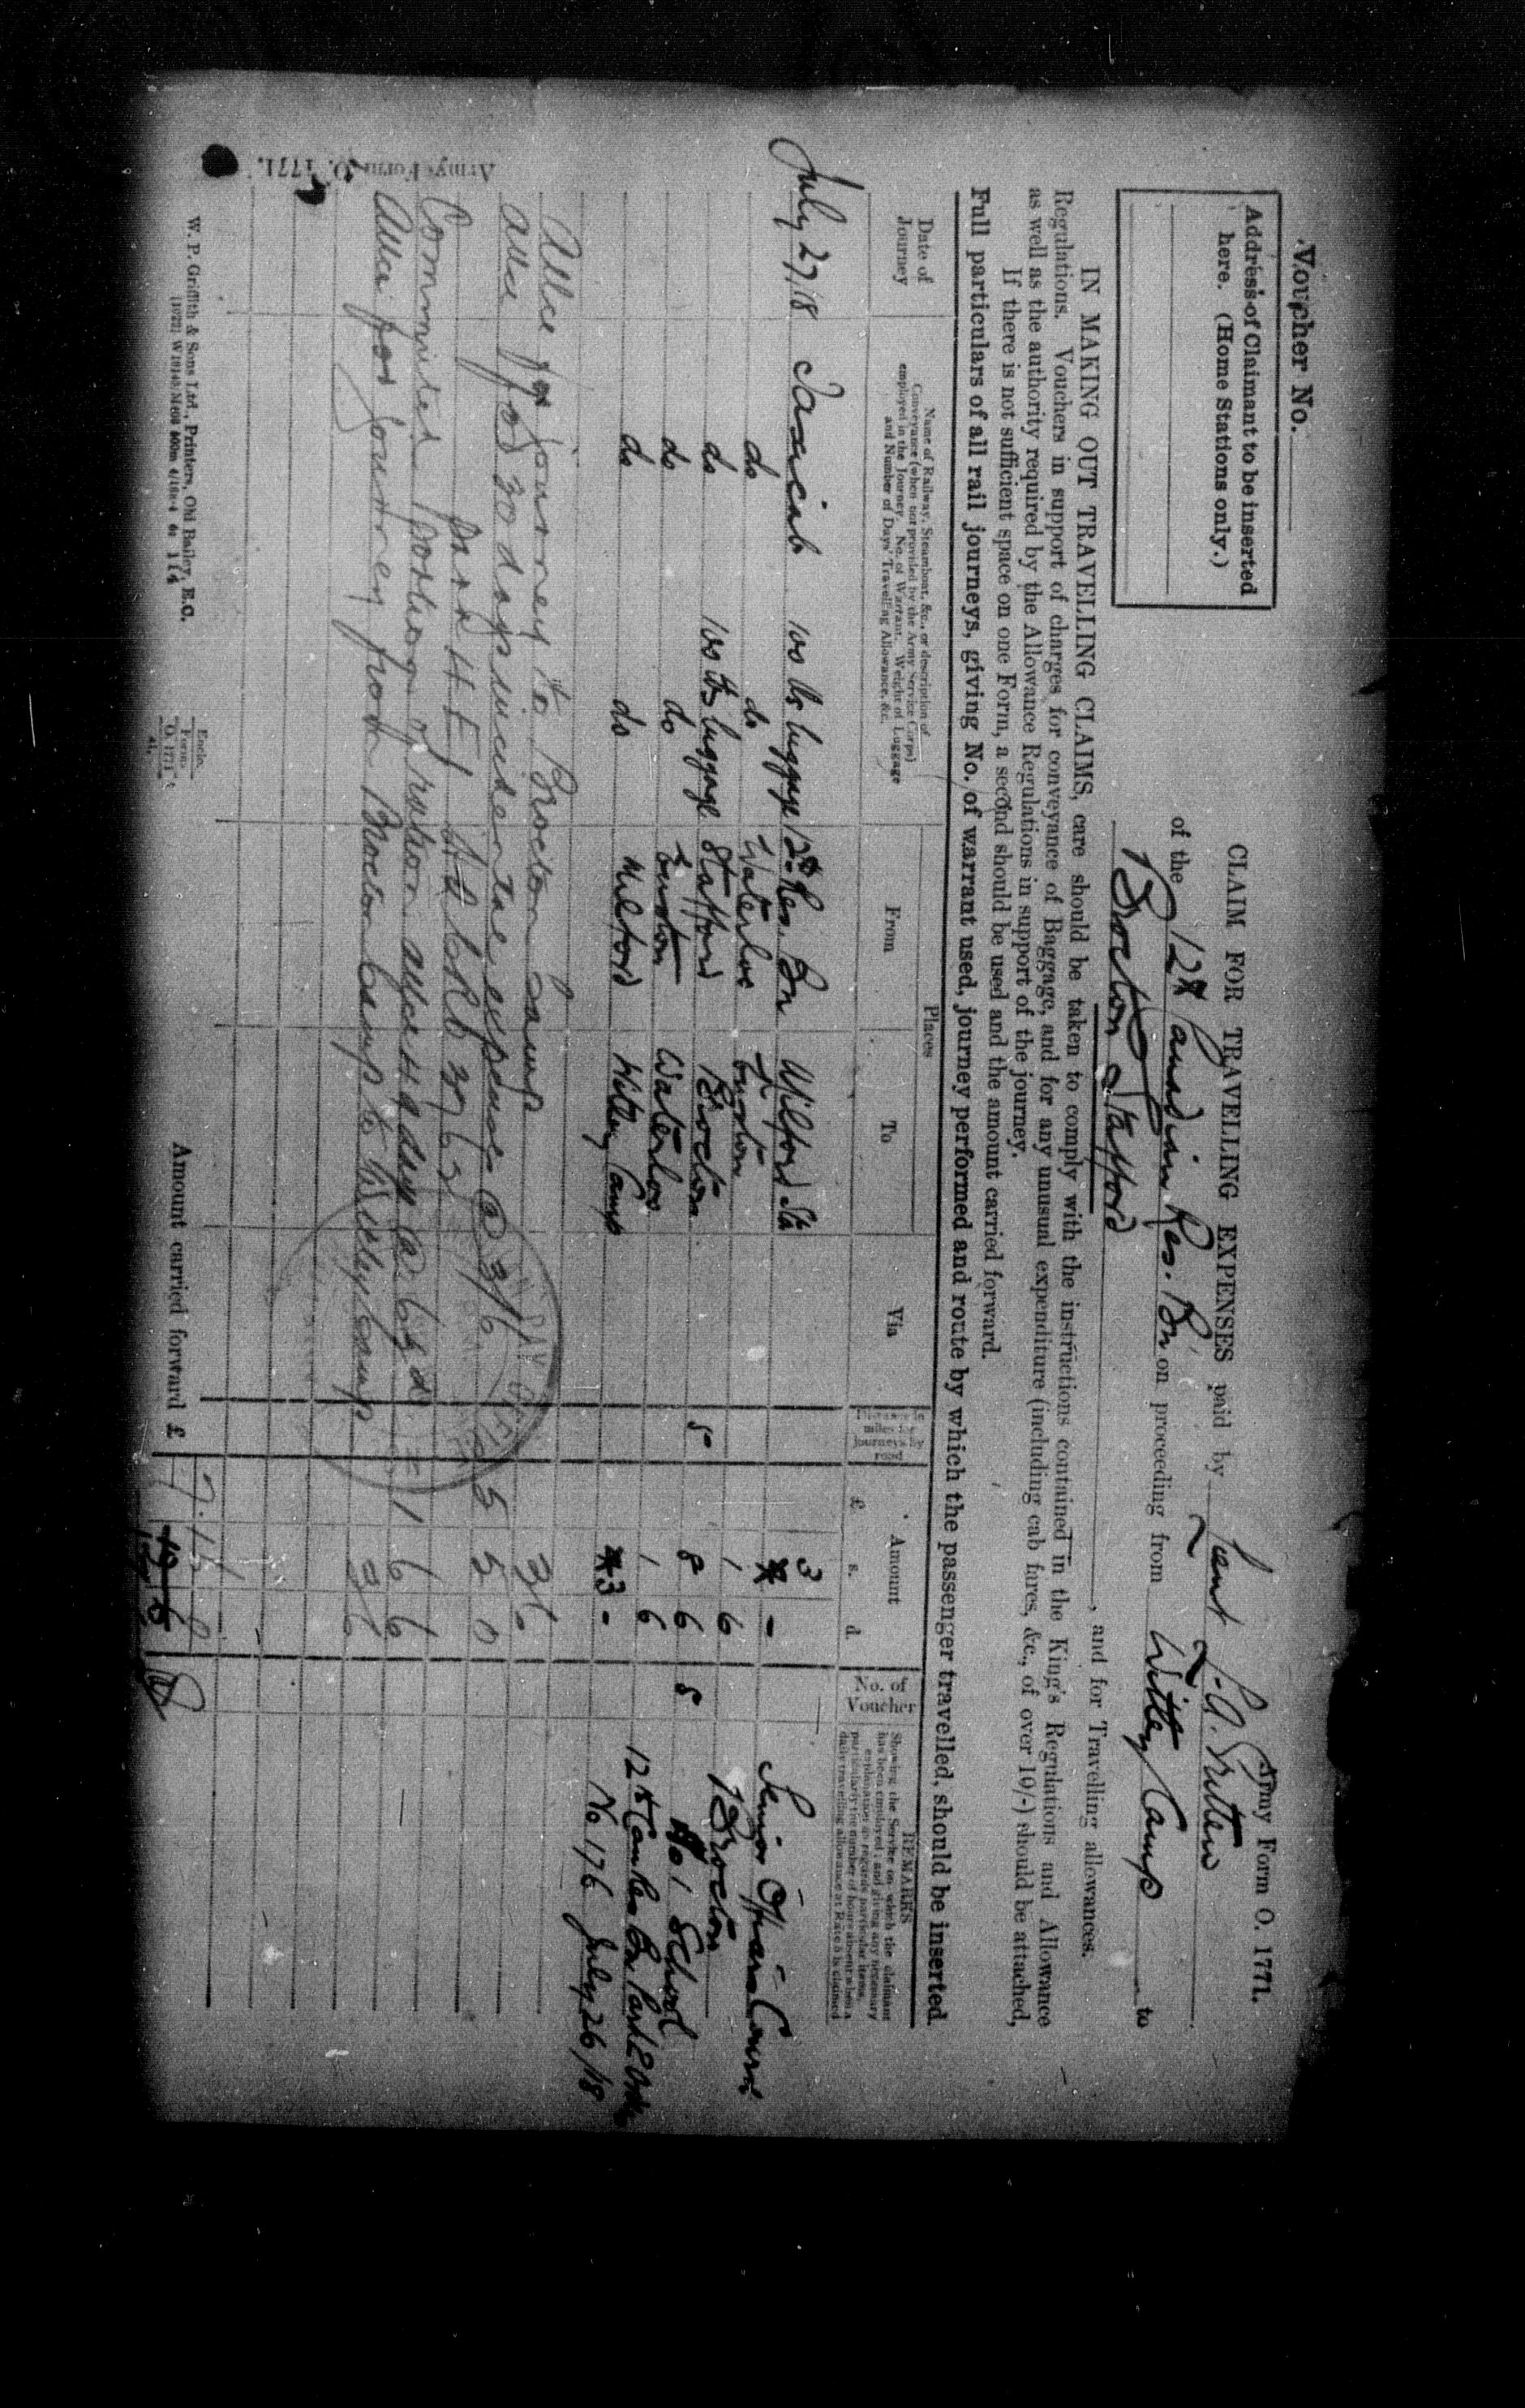 Army Form O. 1771.
Voucher No.
Address of Claimant to be inserted
here. (Home Stations only.)
CLAIM FOR TRAVELLING EXPENSES paid by Lieut
of the 12th Canadian Res. Bn on proceeding from Witley Camp to
Brocton Stafford, and for Travelling allowances.
IN MAKING OUT TRAVELLING CLAIMS, care should be taken to comply with the instructions contained in the King's Regulations and Allowance
Regulations. Vouchers in support of charges for conveyance of Baggage, and for any unusual expenditure (including cab fares, &c., of over 10/-) should be attached,
as well as the authority required by the Allowance Regulations in support of the journey.
If there is not sufficient space on one Form, a second should be used and the amount carried forward.
Full particulars of all rail journeys, giving No. of warrant used, journey performed and route by which the passenger travelled, should be inserted.
Date of
Journey
Name of Railway, Steamboat, &c., or description of
Conveyance (when not provided by the Army Service Corps)
employed in the Journey. No. of Warrant. Weight of Luggage
and Number of Days' Travelling Allowance, &c.
Places
From
To
Via
miles for
journeys by
road
Amount
£ s. d.
No. of
Voucher
REMARKS
Showing the Service on which the claimant
has been employed; and giving any necessary
explanation as regards particular items,
particularly the number of hours absent when a
daily travelling allowance at Rate is claimed
July 27/18 Taxicab 100 lbs luggage 12th Res. Bn Milford Sta 3 - Senior Officers Course
do do Waterloo Euston 1 6 Brocton
do 100 lbs luggage Stafford Brocton 5 8 6 No 1 School
do do Euston Waterloo 1 6 12th Can Res Bn Part 2 Order
do do Milford Witley Camp 3 - No 176 July 26/18
Allce for journey to Brocton Camp
Allce for 30 days incidental expenses @ 3/6 5 5 0
Commuted portion of ration allce 1 6 6
Allce for journey from Brocton Camp to Witley Camp
Amount carried forward £
W. P. Griffith & Sons Ltd., Printers, Old Bailey, E.C.
Army Form O. 1771.